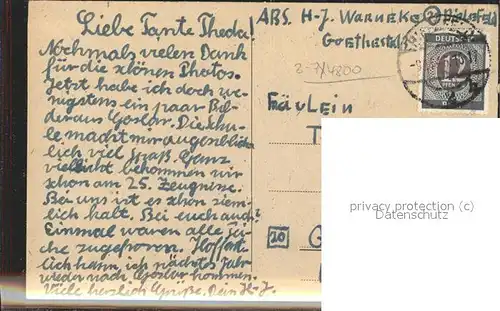 Liebe Tante Theda!
Nochmals vielen Dank
für die schönen Photos.
Jetzt habe ich doch we-
nigstens ein paar Bil-
der aus Goslar. Die Schu-
le macht mir augenblick-
lich viel Spaß. Ganz
vielleicht bekommen wir
schon am 25. Zeugnisse.
Bei uns ist es schon ziem-
lich kalt. Bei euch auch?
Einmal waren alle Tei-
che zugefroren. Hoffent-
lich kann ich nächstes Jahr
wieder nach Goslar kommen.
Viele herzlich Grüße. Dein H-J.
ABS. H-J. WARNEKE Bielefeld
Goethestr.
2-7/4800
DEUTSCHE
12
PFENNIG
FÄULEIN
T
20 G
privacy protection (c)
Datenschutz